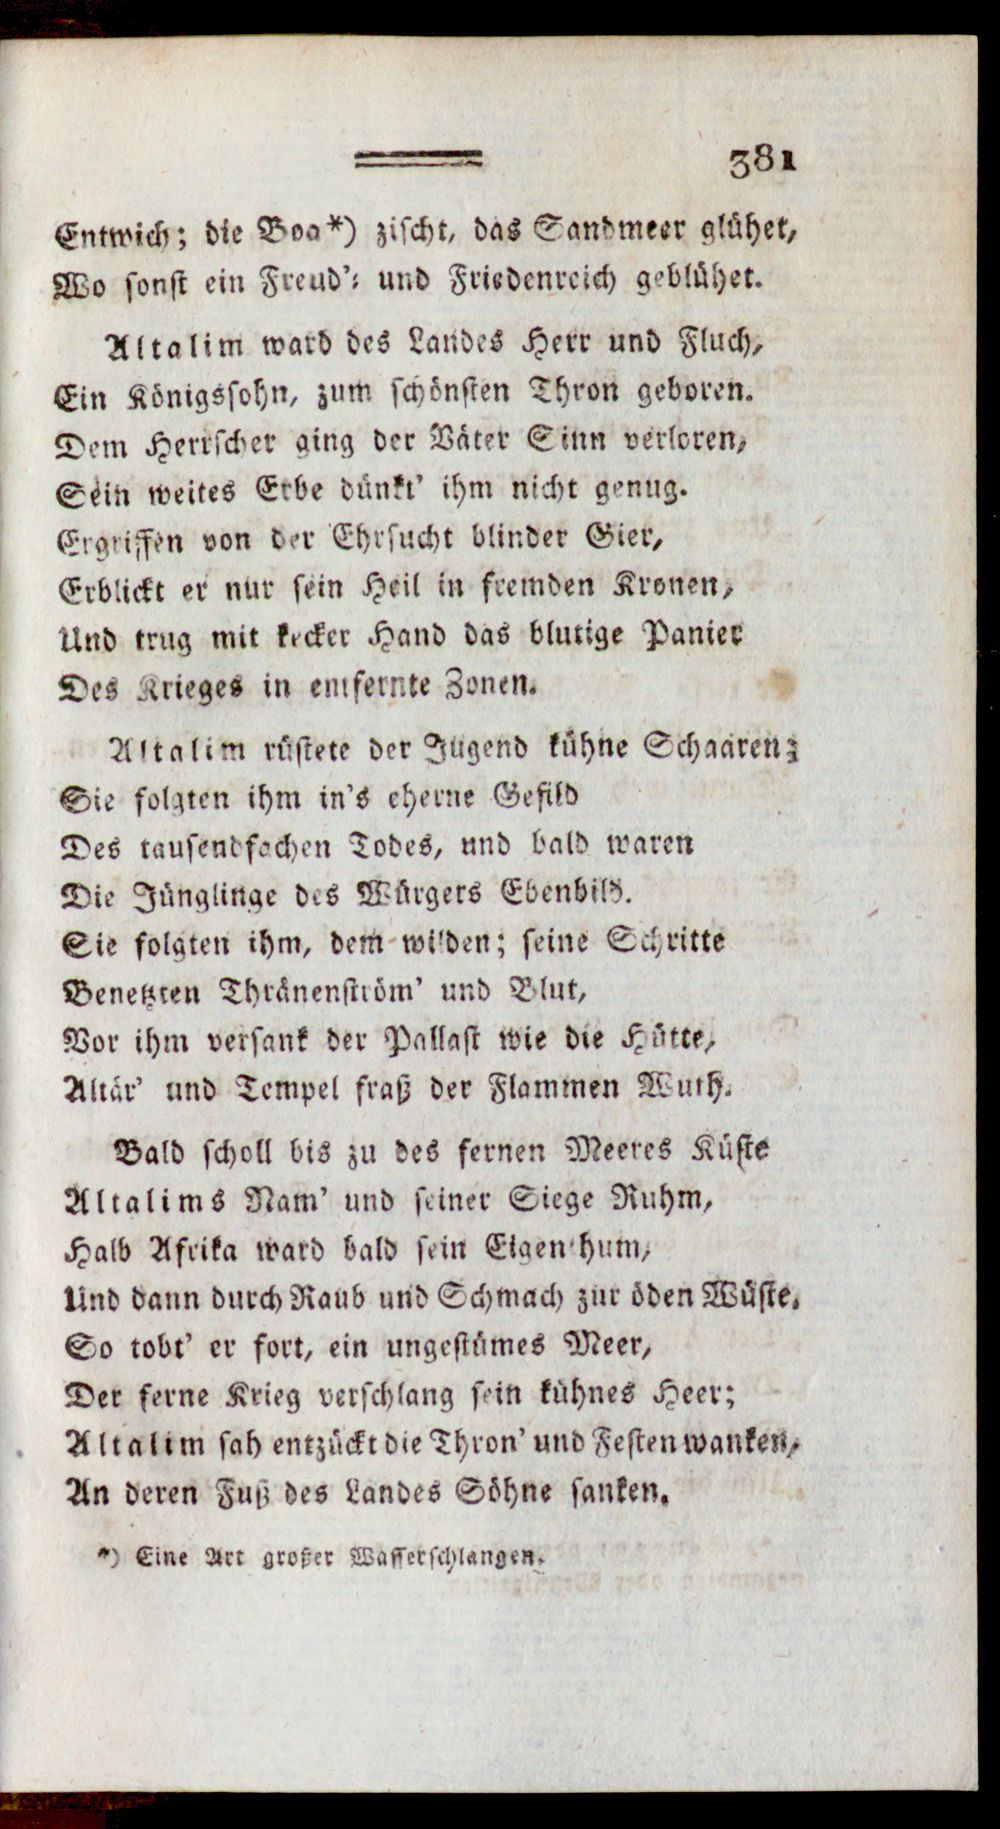 381
Entwich; die Boa*) zischt, das Sandmeer glühet,
Wo sonst ein Freud'- und Friedenreich geblühet.
Altalim ward des Landes Herr und Fluch,
Ein Königssohn, zum schönsten Thron geboren.
Dem Herrscher ging der Väter Sinn verloren,
Sein weites Erbe dünkt' ihm nicht genug.
Ergriffen von der Ehrsucht blinder Gier,
Erblickt er nur sein Heil in fremden Kronen,
Und trug mit kecker Hand das blutige Panier
Des Krieges in entfernte Zonen.
Altalim rüstete der Jugend kühne Schaaren;
Sie folgten ihm in's eherne Gefild
Des tausendfachen Todes, und bald waren
Die Jünglinge des Würgers Ebenbild.
Sie folgten ihm, dem wilden; seine Schritte
Benetzten Thränenström' und Blut,
Vor ihm versank der Pallast wie die Hütte,
Altär' und Tempel fraß der Flammen Wuth.
Bald scholl bis zu des fernen Meeres Küste
Altalims Nam' und seiner Siege Ruhm,
Halb Afrika ward bald sein Eigenthum,
Und dann durch Raub und Schmach zur öden Wüste.
So tobt' er fort, ein ungestümes Meer,
Der ferne Krieg verschlang sein kühnes Heer;
Altalim sah entzückt die Thron' und Festen wanken,
An deren Fuß des Landes Söhne sanken.
*) Eine Art großer Wasserschlangen.